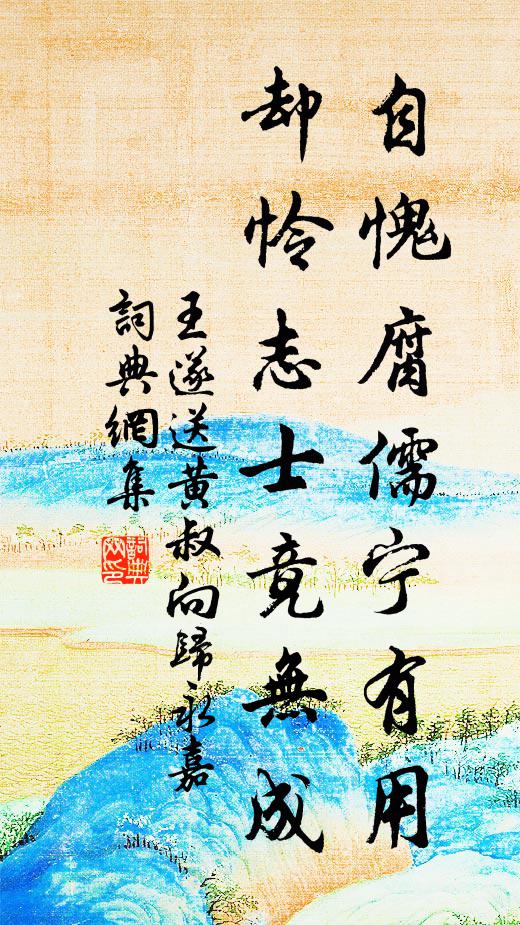 自愧腐儒宁有用
却怜志士竟無成
王遂送黄叔向歸永嘉
詞典網集
詞典網印